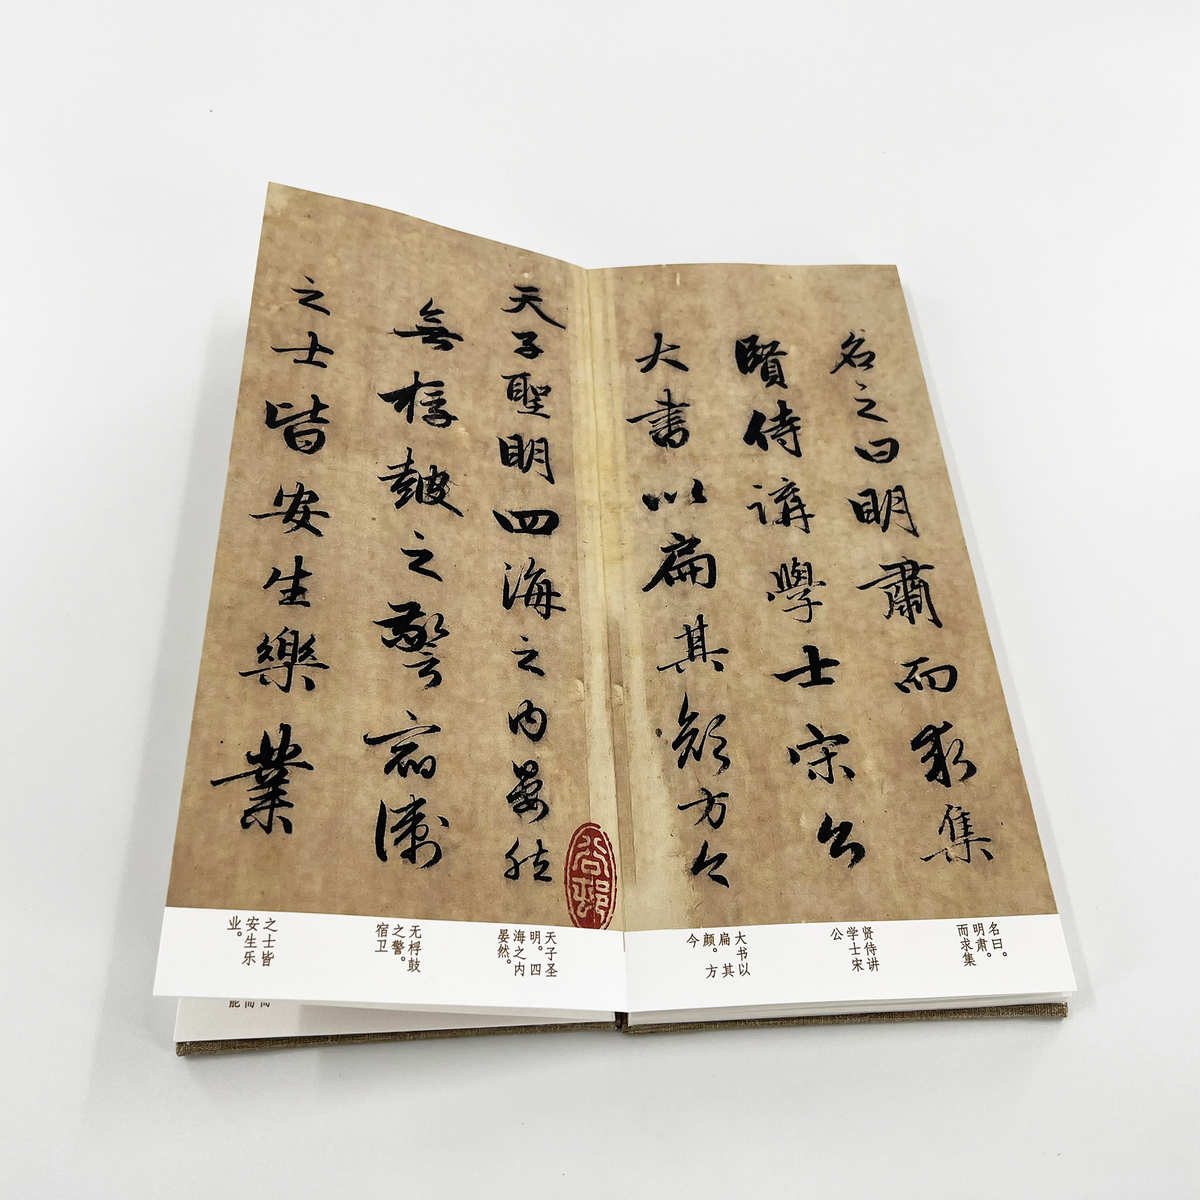 名之曰明肅而求集
賢侍講學士宋公
大書以扁其顏方今
天子聖明四海之内晏然
無桴鼓之警宿衛
之士皆安生樂業
名曰。
明肃。
而求集
贤侍讲
学士宋
公
大书以
扁其
颜。方
今
天子圣
明。四
海之内
晏然。
无桴鼓
之警。
宿卫
之士皆
安生乐
业。